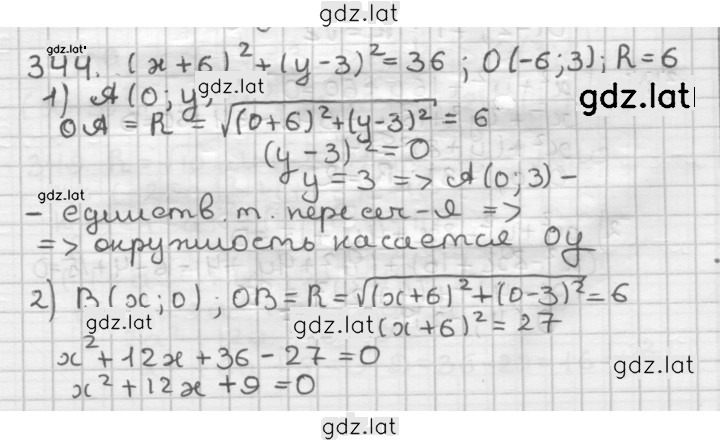 gdz.lat
344. (x+6)²+(y-3)²=36; O(-6;3); R=6
gdz.lat
1) A(0; y)
gdz.lat
gdz.lat
OA = R = √((0+6)²+(y-3)²) = 6
(y-3)²=0
y=3 => A(0;3) -
gdz.lat
- единств. т. пересеч-я =>
=> окружность касается Oy
2) B(x;0); OB=R=√((x+6)²+(0-3)²)=6
gdz.lat
gdz.lat (x+6)²=27
x²+12x+36-27=0
gdz.lat
x²+12x+9=0
gdz.lat